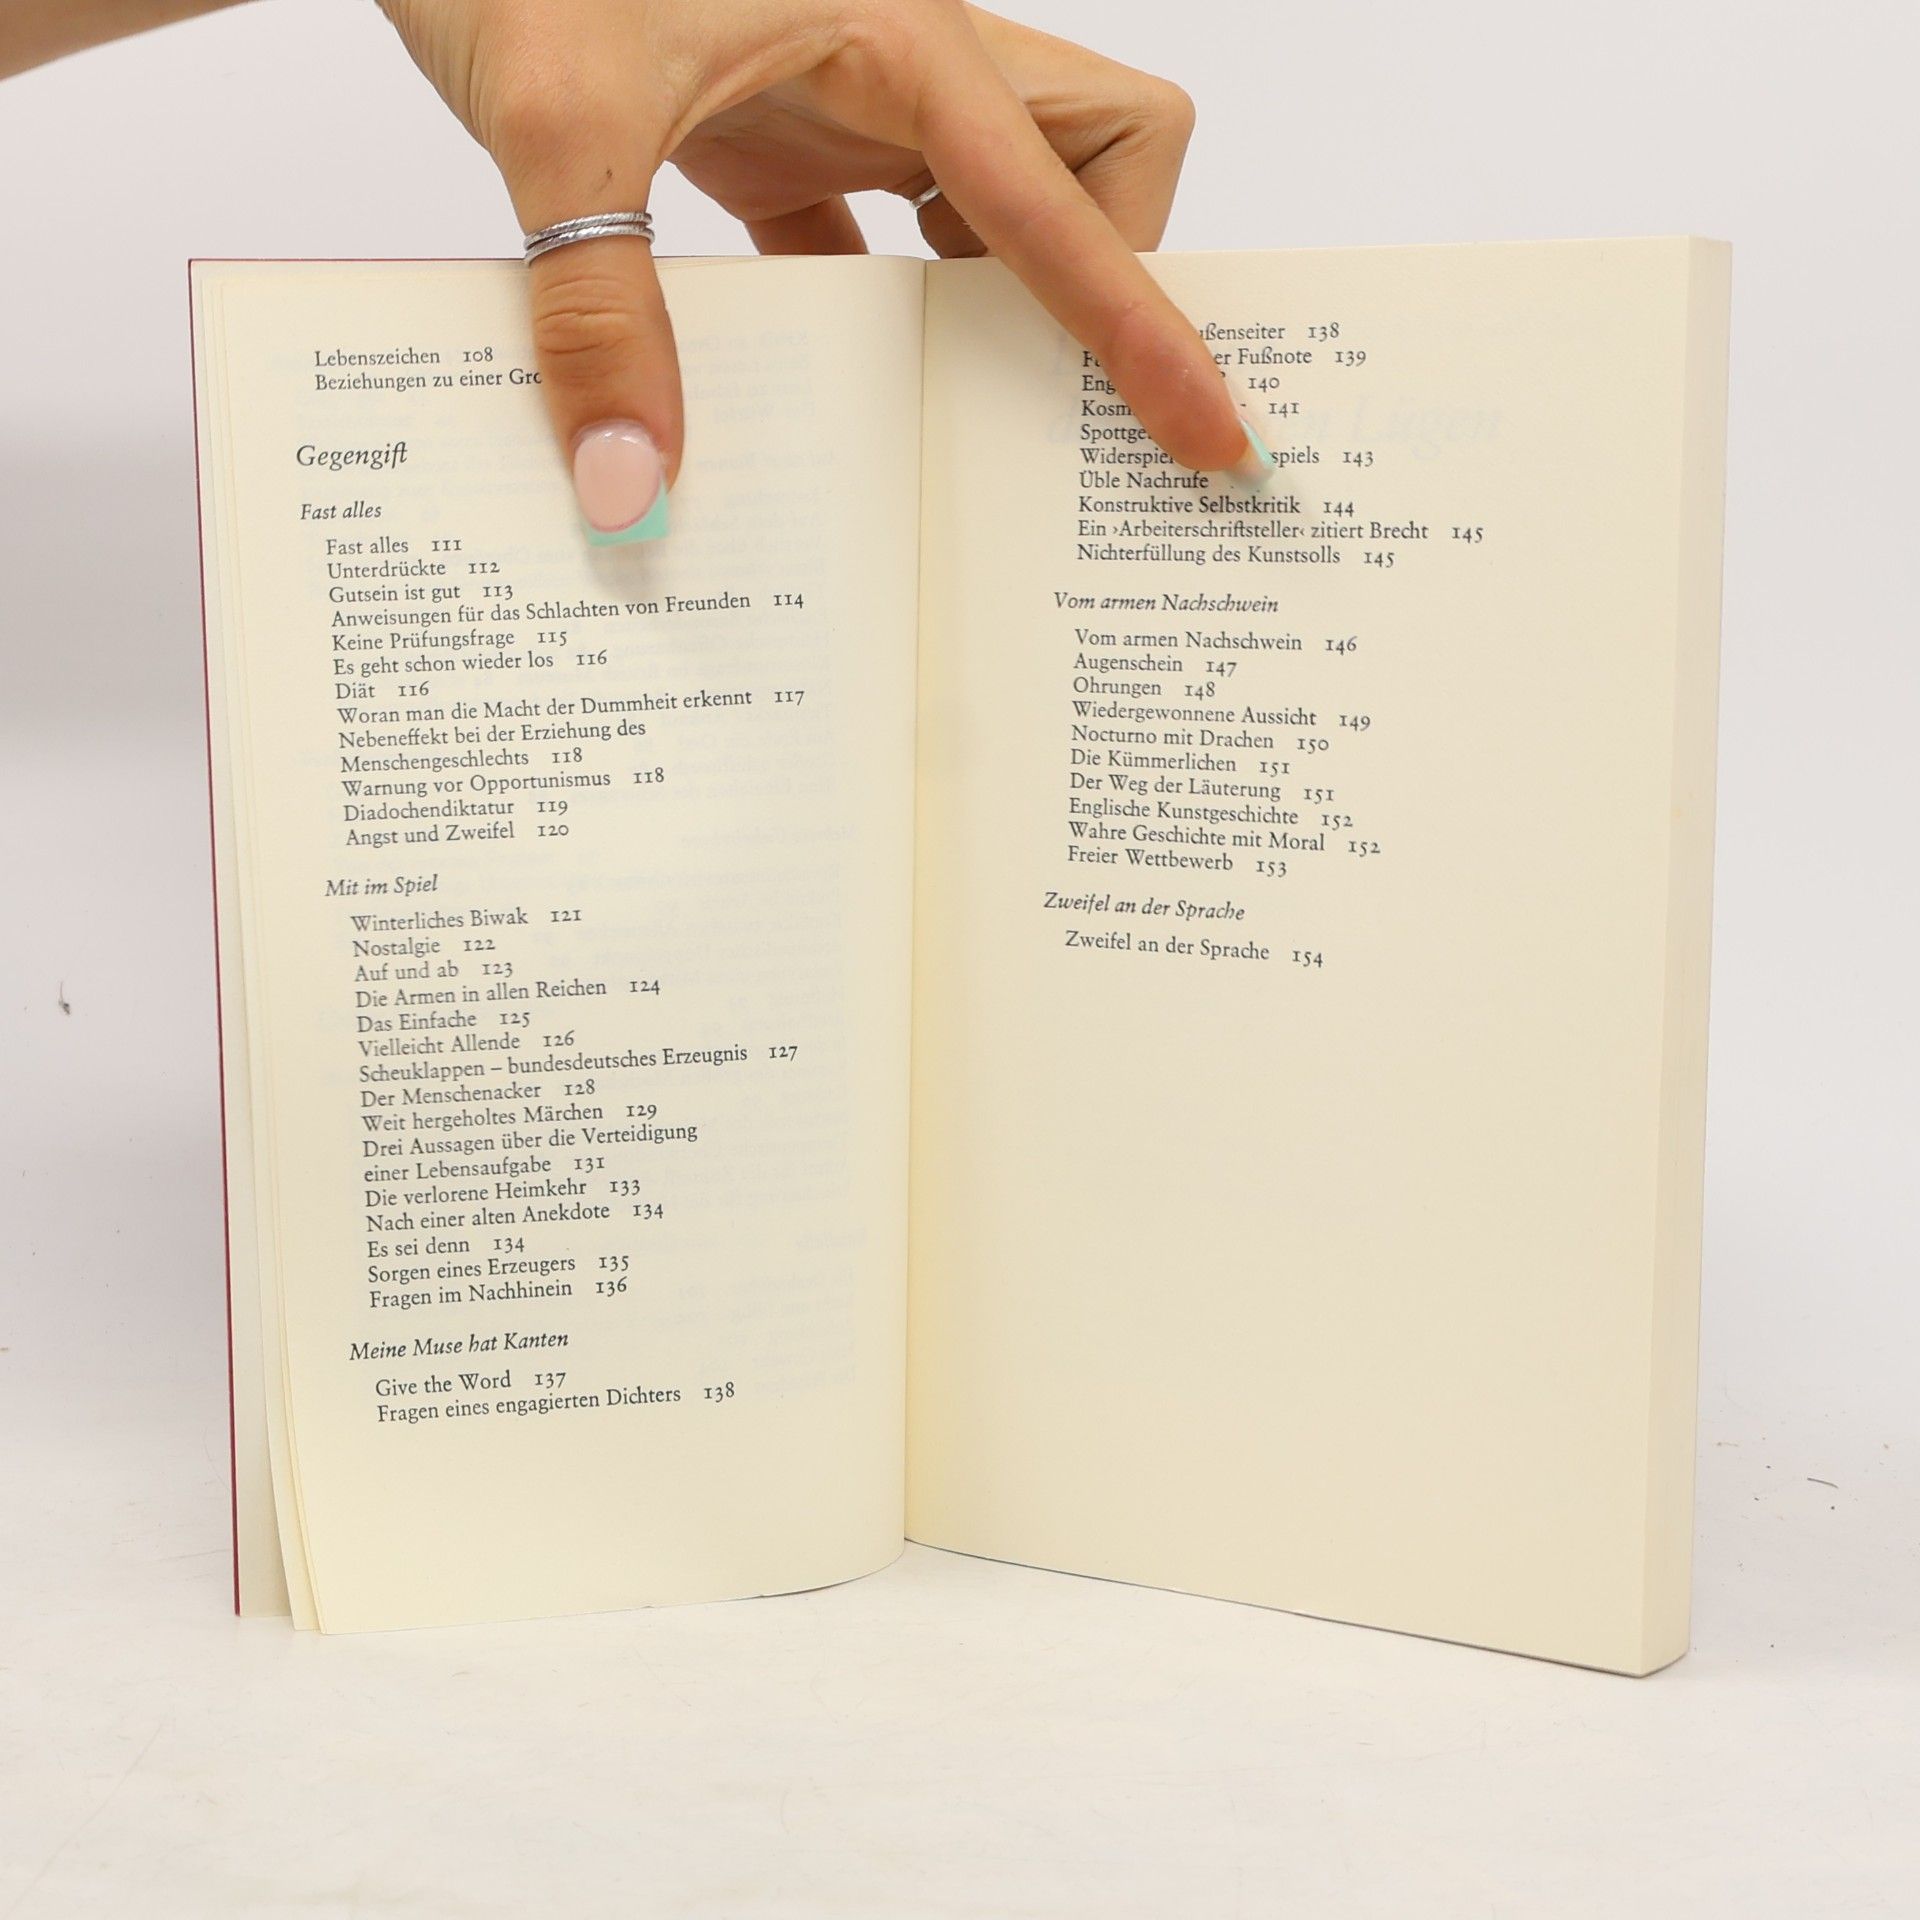 Lebenszeichen 108
Beziehungen zu einer
Gegengift
Fast alles
Fast alles 111
Unterdrückte 112
Gutsein ist gut 113
Anweisungen für das Schlachten von Freunden 114
Keine Prüfungsfrage 115
Es geht schon wieder los 116
Diät 116
Woran man die Macht der Dummheit erkennt 117
Nebeneffekt bei der Erziehung des
Menschengeschlechts 118
Warnung vor Opportunismus 118
Diadochendiktatur 119
Angst und Zweifel 120
Mit im Spiel
Winterliches Biwak 121
Nostalgie 122
Auf und ab 123
Die Armen in allen Reichen 124
Das Einfache 125
Vielleicht Allende 126
Scheuklappen – bundesdeutsches Erzeugnis 127
Der Menschenacker 128
Weit hergeholtes Märchen 129
Drei Aussagen über die Verteidigung
einer Lebensaufgabe 131
Die verlorene Heimkehr 133
Nach einer alten Anekdote 134
Es sei denn 134
Sorgen eines Erzeugers 135
Fragen im Nachhinein 136
Meine Muse hat Kanten
Give the Word 137
Fragen eines engagierten Dichters 138
138
Fußnote 139
140
141
143
Üble Nachrufe
Konstruktive Selbstkritik 144
Ein ›Arbeiterschriftsteller‹ zitiert Brecht 145
Nichterfüllung des Kunstsolls 145
Vom armen Nachschwein
Vom armen Nachschwein 146
Augenschein 147
Ohrungen 148
Wiedergewonnene Aussicht 149
Nocturno mit Drachen 150
Die Kümmerlichen 151
Der Weg der Läuterung 151
Englische Kunstgeschichte 152
Wahre Geschichte mit Moral 152
Freier Wettbewerb 153
Zweifel an der Sprache
Zweifel an der Sprache 154